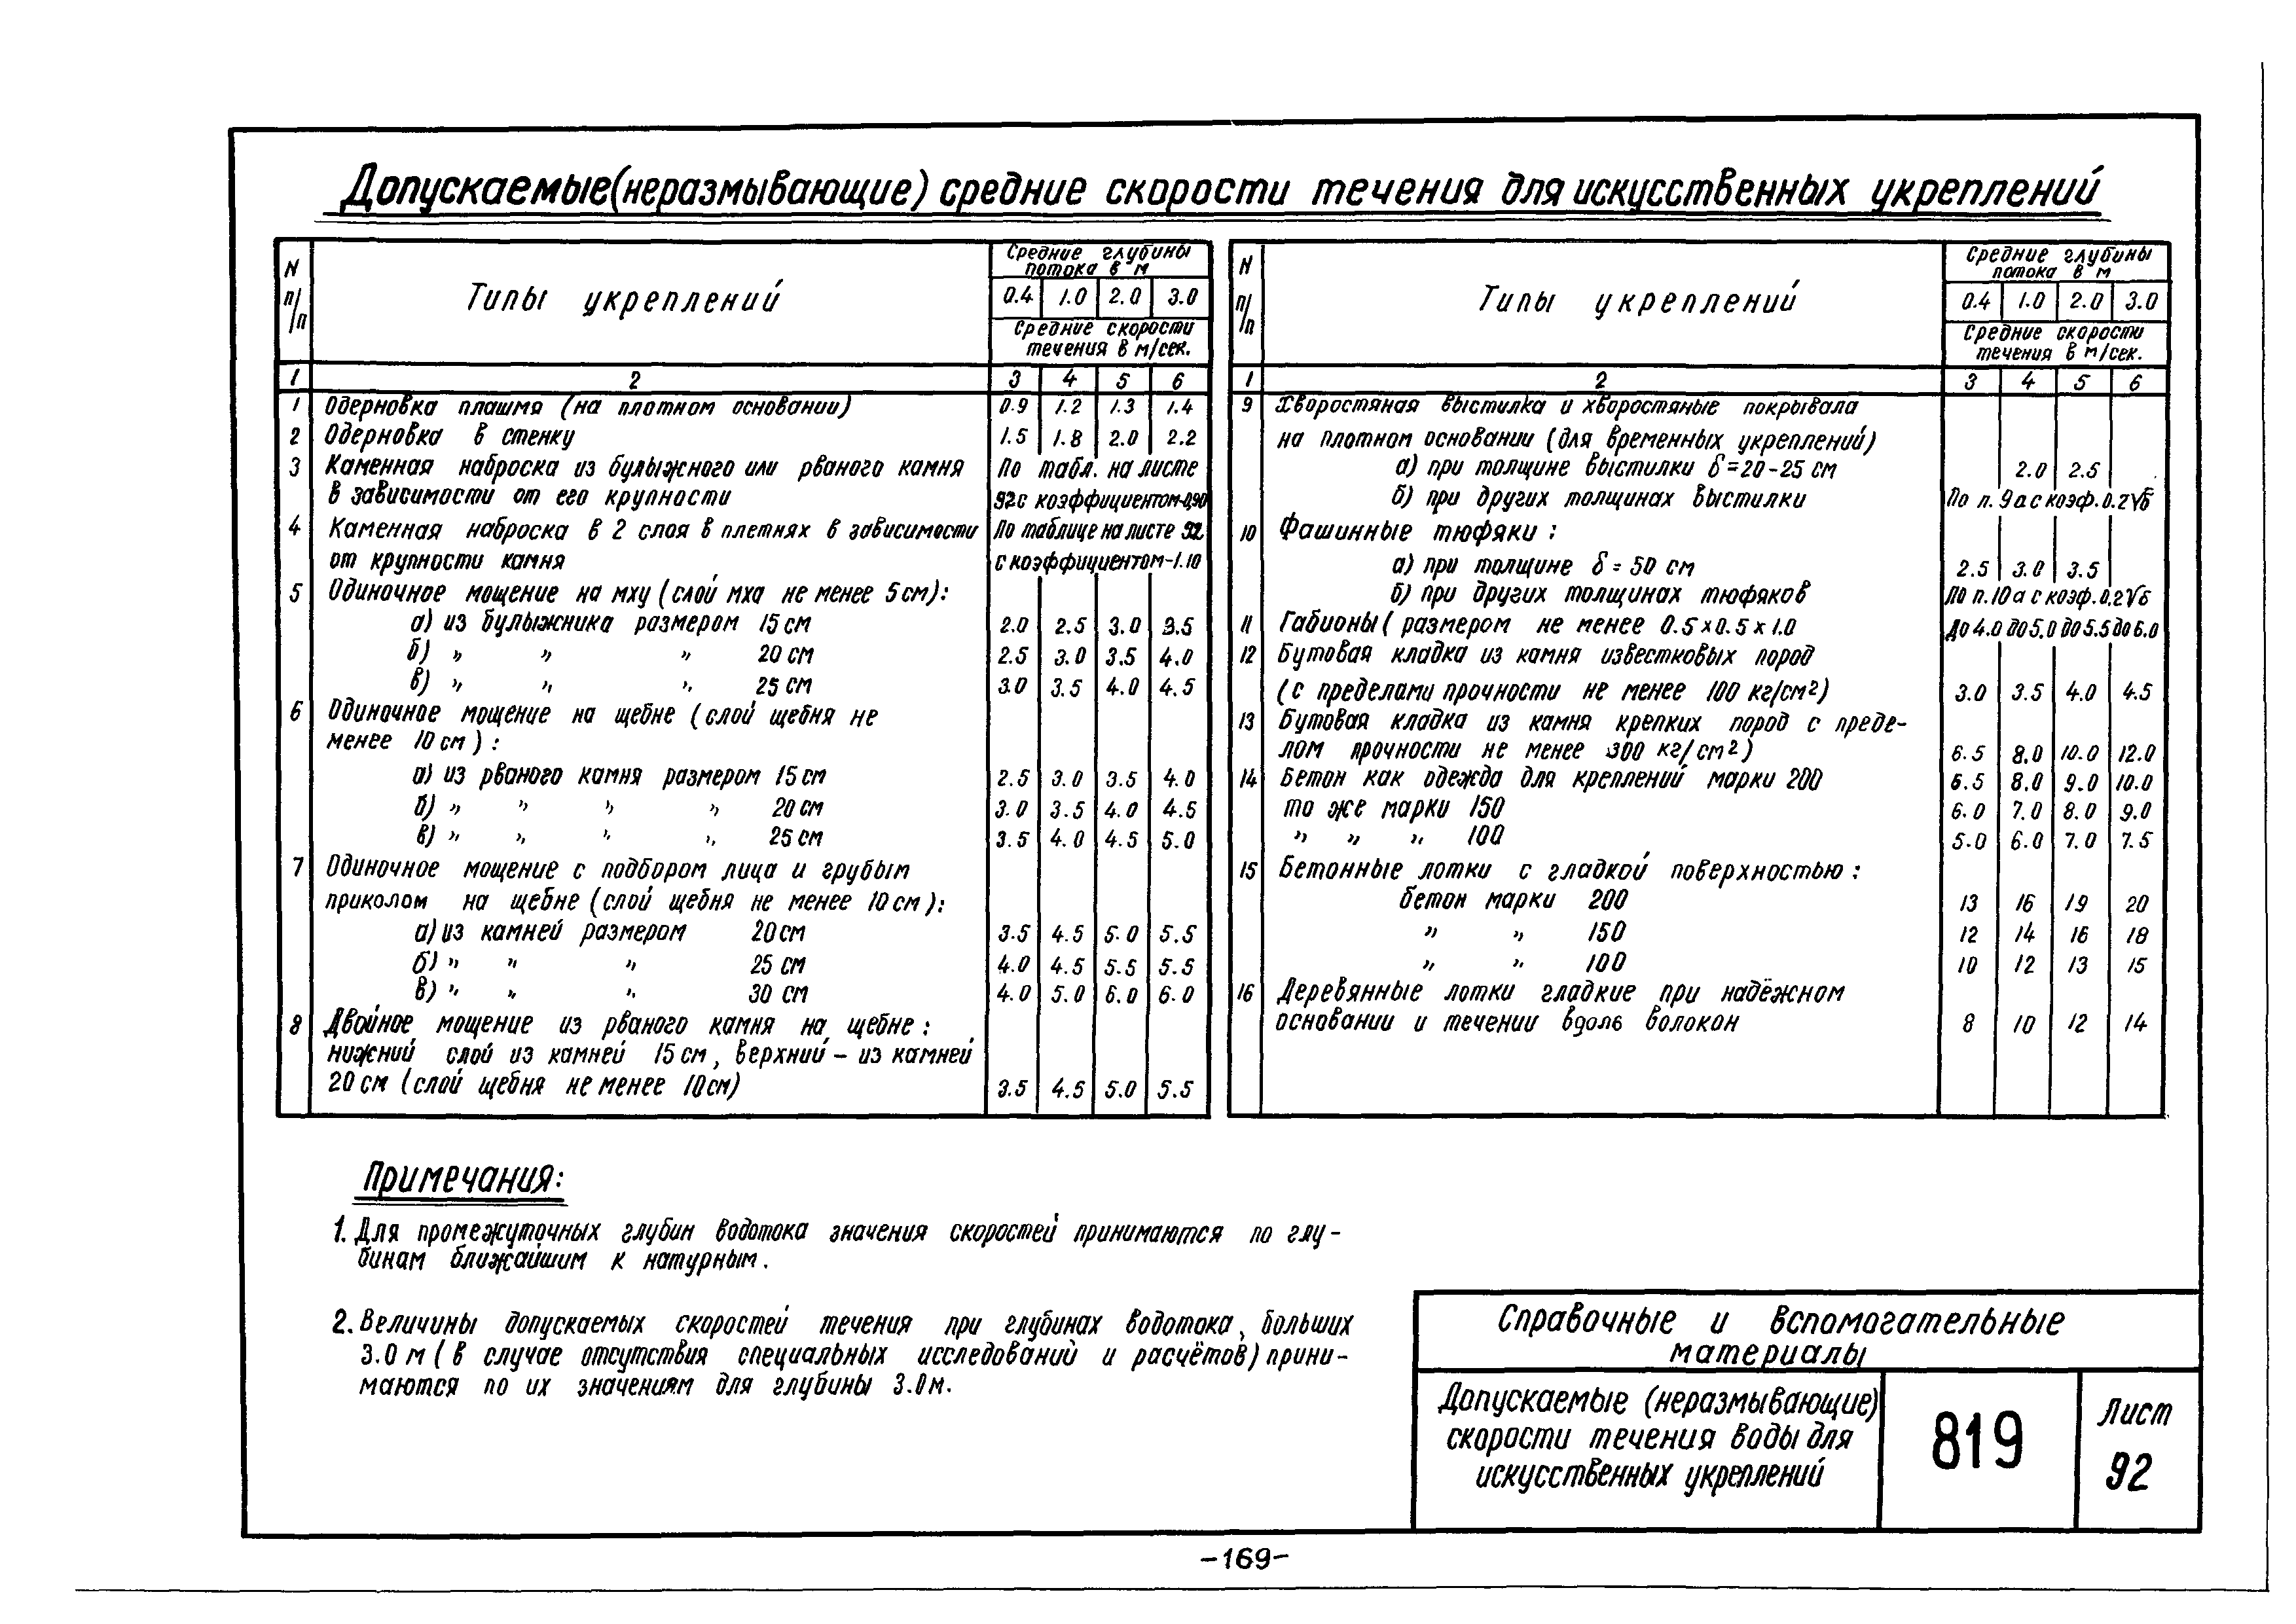 Допускаемые (неразмывающие) средние скорости течения для искусственных укреплений
N п/п Типы укреплений Средние глубины потока в м
0.4 1.0 2.0 3.0
Средние скорости течения в м/сек.
1 2 3 4 5 6
1 Одерновка плашмя (на плотном основании) 0.9 1.2 1.3 1.4
2 Одерновка в стенку 1.5 1.8 2.0 2.2
3 Каменная наброска из булыжного или рваного камня По табл. на листе
в зависимости от его крупности 92 с коэффициентом-0,90
4 Каменная наброска в 2 слоя в плетнях в зависимости По таблице на листе 92
от крупности камня с коэффициентом-1.10
5 Одиночное мощение на мху (слой мха не менее 5 см):
а) из булыжника размером 15 см 2.0 2.5 3.0 3.5
б) " " " 20 см 2.5 3.0 3.5 4.0
в) " " " 25 см 3.0 3.5 4.0 4.5
6 Одиночное мощение на щебне (слой щебня не
менее 10 см):
а) из рваного камня размером 15 см 2.5 3.0 3.5 4.0
б) " " " " 20 см 3.0 3.5 4.0 4.5
в) " " " " 25 см 3.5 4.0 4.5 5.0
7 Одиночное мощение с подбором лица и грубым
приколом на щебне (слой щебня не менее 10 см):
а) из камней размером 20 см 3.5 4.5 5.0 5.5
б) " " " 25 см 4.0 4.5 5.5 5.5
в) " " " 30 см 4.0 5.0 6.0 6.0
8 Двойное мощение из рваного камня на щебне:
нижний слой из камней 15 см, верхний – из камней
20 см (слой щебня не менее 10 см) 3.5 4.5 5.0 5.5
N п/п Типы укреплений Средние глубины потока в м
0.4 1.0 2.0 3.0
Средние скорости течения в м/сек.
1 2 3 4 5 6
9 Хворостяная выстилка и хворостяные покрывала
на плотном основании (для временных укреплений)
а) при толщине выстилки δ=20-25 см 2.0 2.5
б) при других толщинах выстилки По п. 9а с коэф. 0.2√δ
10 Фашинные тюфяки:
а) при толщине δ=50 см 2.5 3.0 3.5
б) при других толщинах тюфяков По п. 10а с коэф. 0.2√δ
11 Габионы (размером не менее 0.5×0.5×1.0 до 4.0 до 5.0 до 5.5 до 6.0
12 Бутовая кладка из камня известковых пород
(с пределами прочности не менее 100 кг/см²) 3.0 3.5 4.0 4.5
13 Бутовая кладка из камня крепких пород с преде-
лом прочности не менее 300 кг/см²) 6.5 8.0 10.0 12.0
14 Бетон как одежда для креплений марки 200 6.5 8.0 9.0 10.0
то же марки 150 6.0 7.0 8.0 9.0
" " " 100 5.0 6.0 7.0 7.5
15 Бетонные лотки с гладкой поверхностью:
бетон марки 200 13 16 19 20
" " 150 12 14 16 18
" " 100 10 12 13 15
16 Деревянные лотки гладкие при надёжном
основании и течении вдоль волокон 8 10 12 14
Примечания:
1. Для промежуточных глубин водотока значения скоростей принимаются по глу-
бинам ближайшим к натурным.
2. Величины допускаемых скоростей течения при глубинах водотока, больших
3.0 м (в случае отсутствия специальных исследований и расчётов) прини-
маются по их значениям для глубины 3.0 м.
Справочные и вспомогательные
материалы
Допускаемые (неразмывающие)
скорости течения воды для
искусственных укреплений
819
Лист
92
-169-